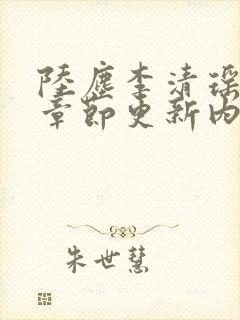 陸塵李清瑶
章節更新内
朱世慧